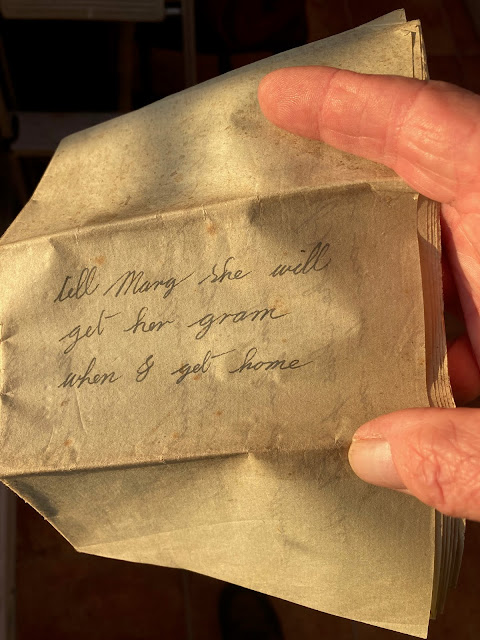 tell Marg she will
get her gram
when I get home